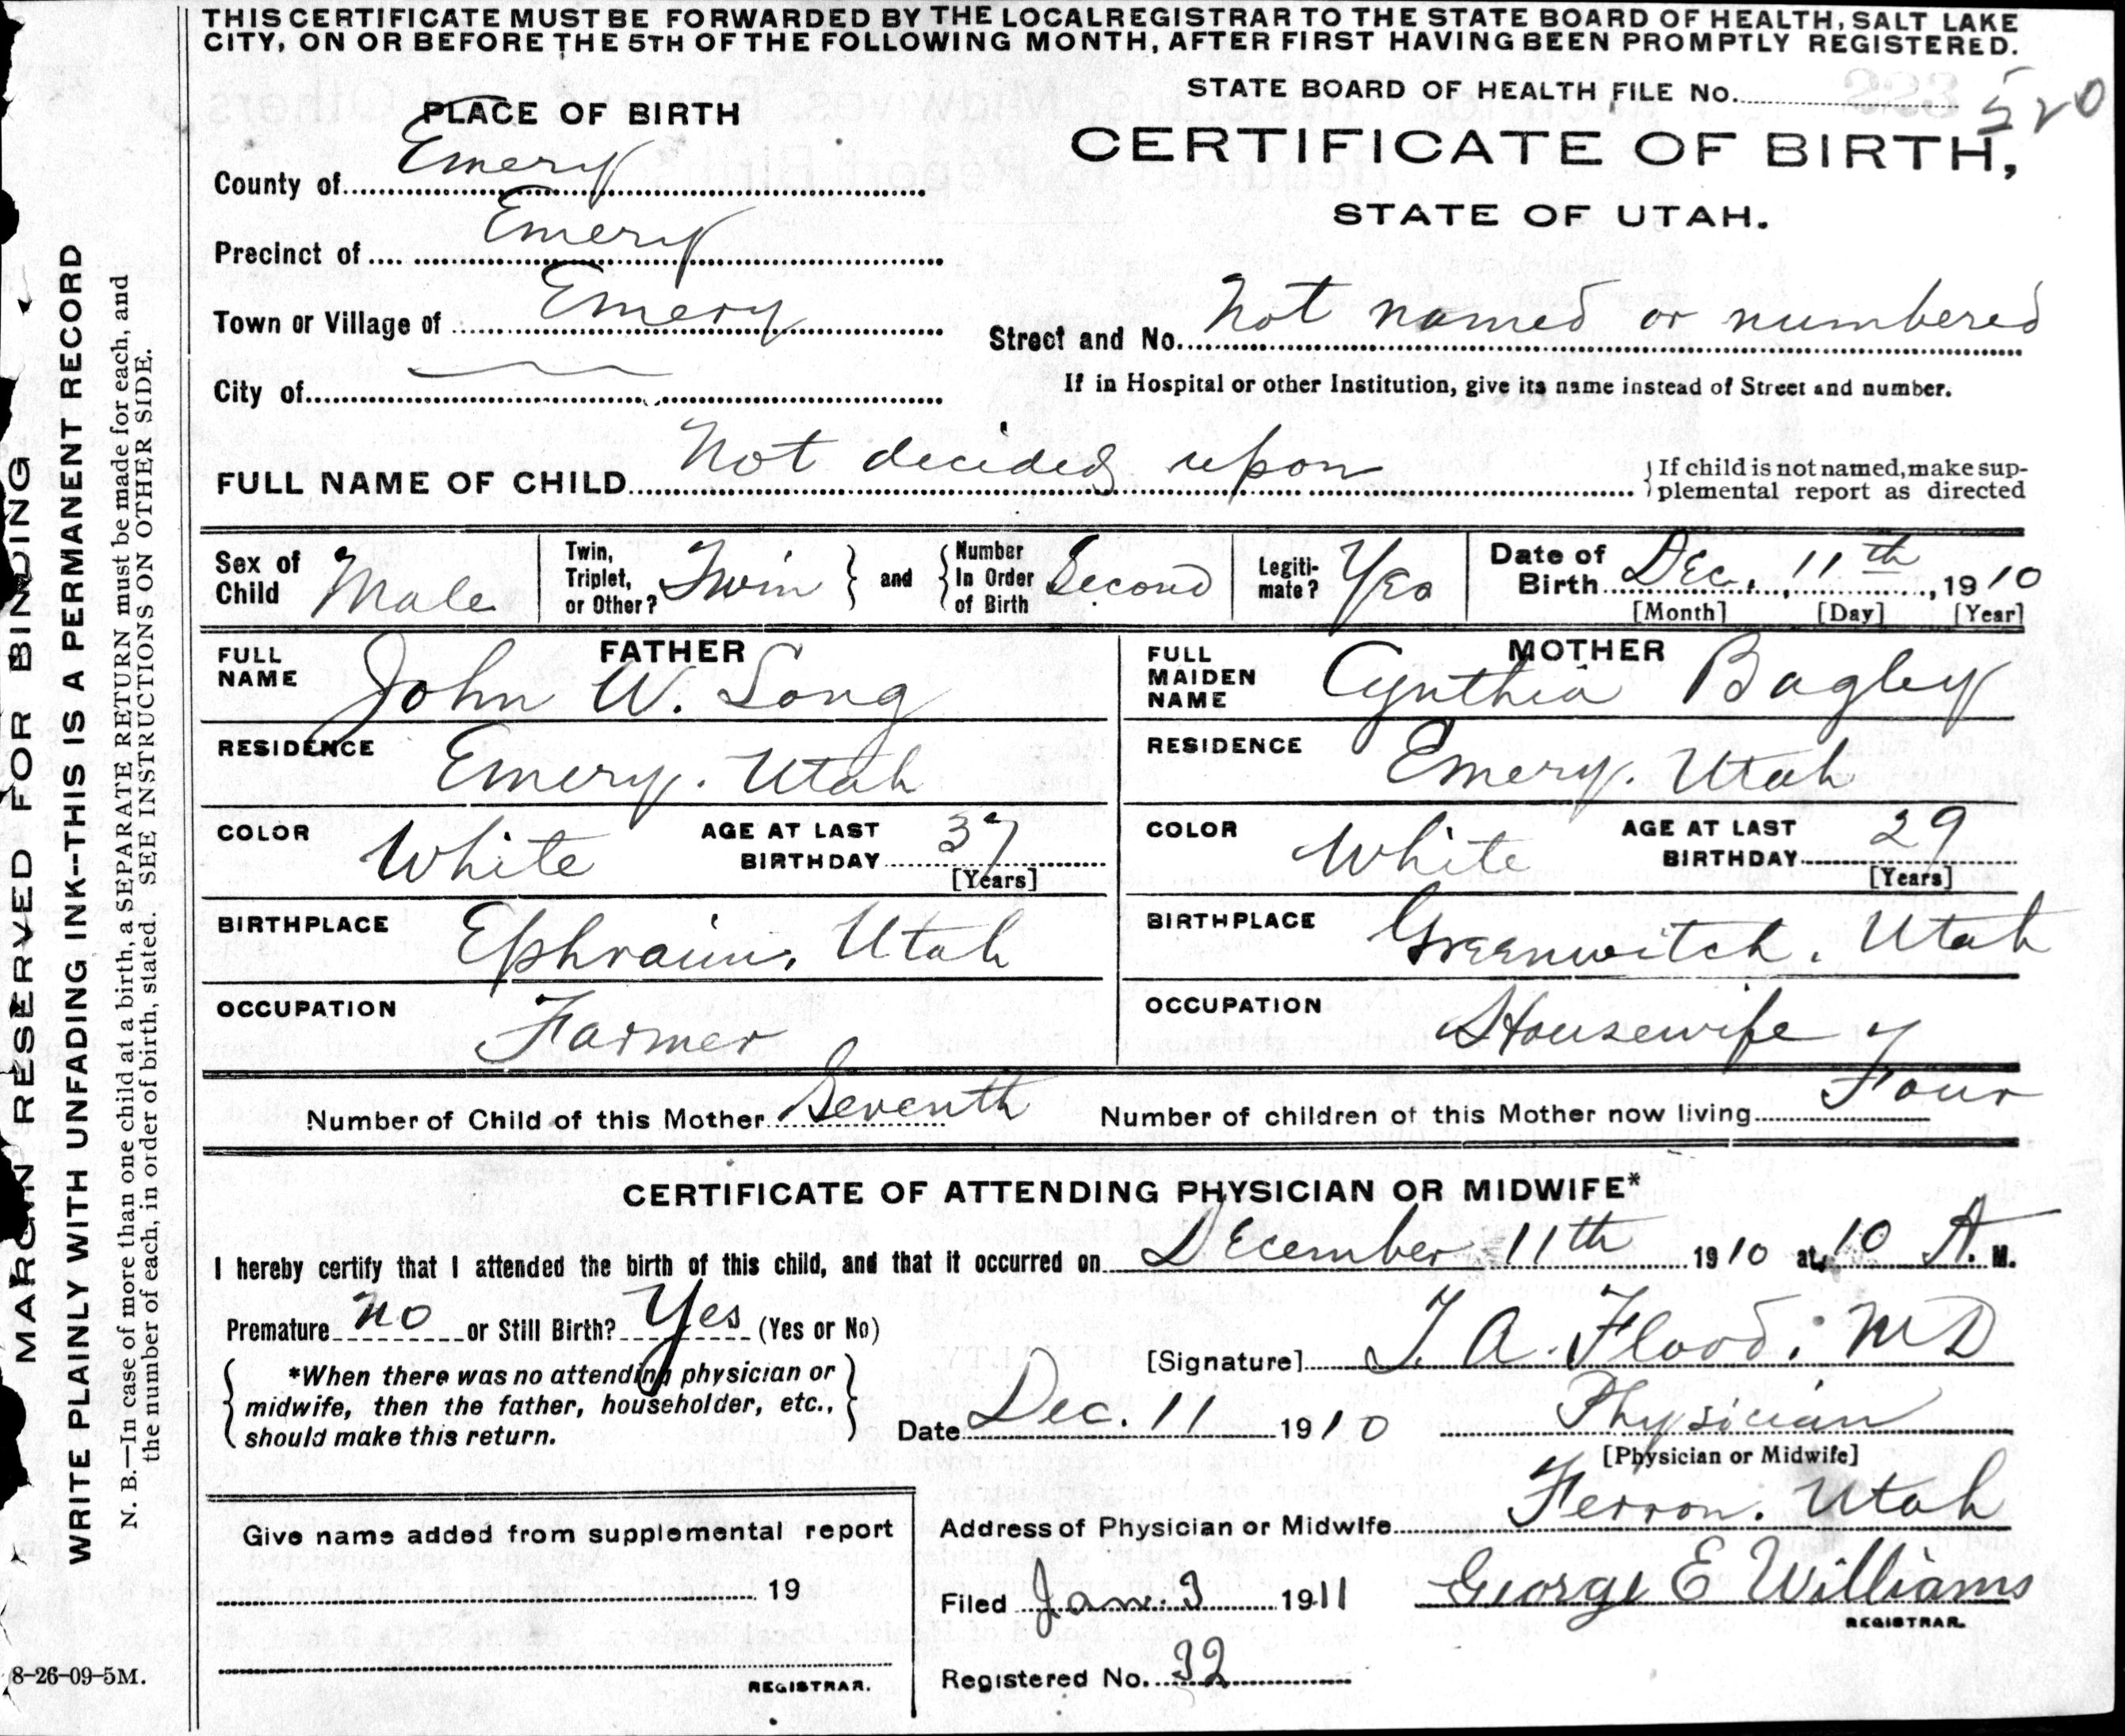 THIS CERTIFICATE MUST BE FORWARDED BY THE LOCAL REGISTRAR TO THE STATE BOARD OF HEALTH, SALT LAKE
CITY, ON OR BEFORE THE 5TH OF THE FOLLOWING MONTH, AFTER FIRST HAVING BEEN PROMPTLY REGISTERED.
STATE BOARD OF HEALTH FILE No. 520
CERTIFICATE OF BIRTH,
STATE OF UTAH.
PLACE OF BIRTH
County of Emery
Precinct of Emery
Town or Village of Emery
Street and No. Not named or numbered
City of
If in Hospital or other Institution, give its name instead of Street and number.
FULL NAME OF CHILD Not decided upon
If child is not named, make sup-
plemental report as directed
Sex of Child Male
Twin, Triplet, or Other? Twin and Number In Order of Birth Second
Legiti-mate? Yes
Date of Birth Dec. 11th, 1910
[Month] [Day] [Year]
FATHER
FULL NAME John W. Long
RESIDENCE Emery. Utah
COLOR White AGE AT LAST BIRTHDAY 37
[Years]
BIRTHPLACE Ephraim, Utah
OCCUPATION Farmer
MOTHER
FULL MAIDEN NAME Cynthia Bagley
RESIDENCE Emery. Utah
COLOR White AGE AT LAST BIRTHDAY 29
[Years]
BIRTHPLACE Greenwitch. Utah
OCCUPATION Housewife
Number of Child of this Mother Seventh Number of children of this Mother now living Four
CERTIFICATE OF ATTENDING PHYSICIAN OR MIDWIFE*
I hereby certify that I attended the birth of this child, and that it occurred on December 11th 1910 at 10 A. M.
Premature no or Still Birth? Yes (Yes or No)
*When there was no attending physician or
midwife, then the father, householder, etc.,
should make this return.
[Signature] T. A. Flood. MD
Date Dec. 11 1910 Physician
[Physician or Midwife]
Address of Physician or Midwife Ferron. Utah
Filed Jan. 3 1911 George E Williams
REGISTRAR.
Registered No. 32
Give name added from supplemental report
19
REGISTRAR.
MARGIN RESERVED FOR BINDING
WRITE PLAINLY WITH UNFADING INK--THIS IS A PERMANENT RECORD
N. B.—In case of more than one child at a birth, a SEPARATE RETURN must be made for each, and
the number of each, in order of birth, stated. SEE INSTRUCTIONS ON OTHER SIDE.
8-26-09-5M.